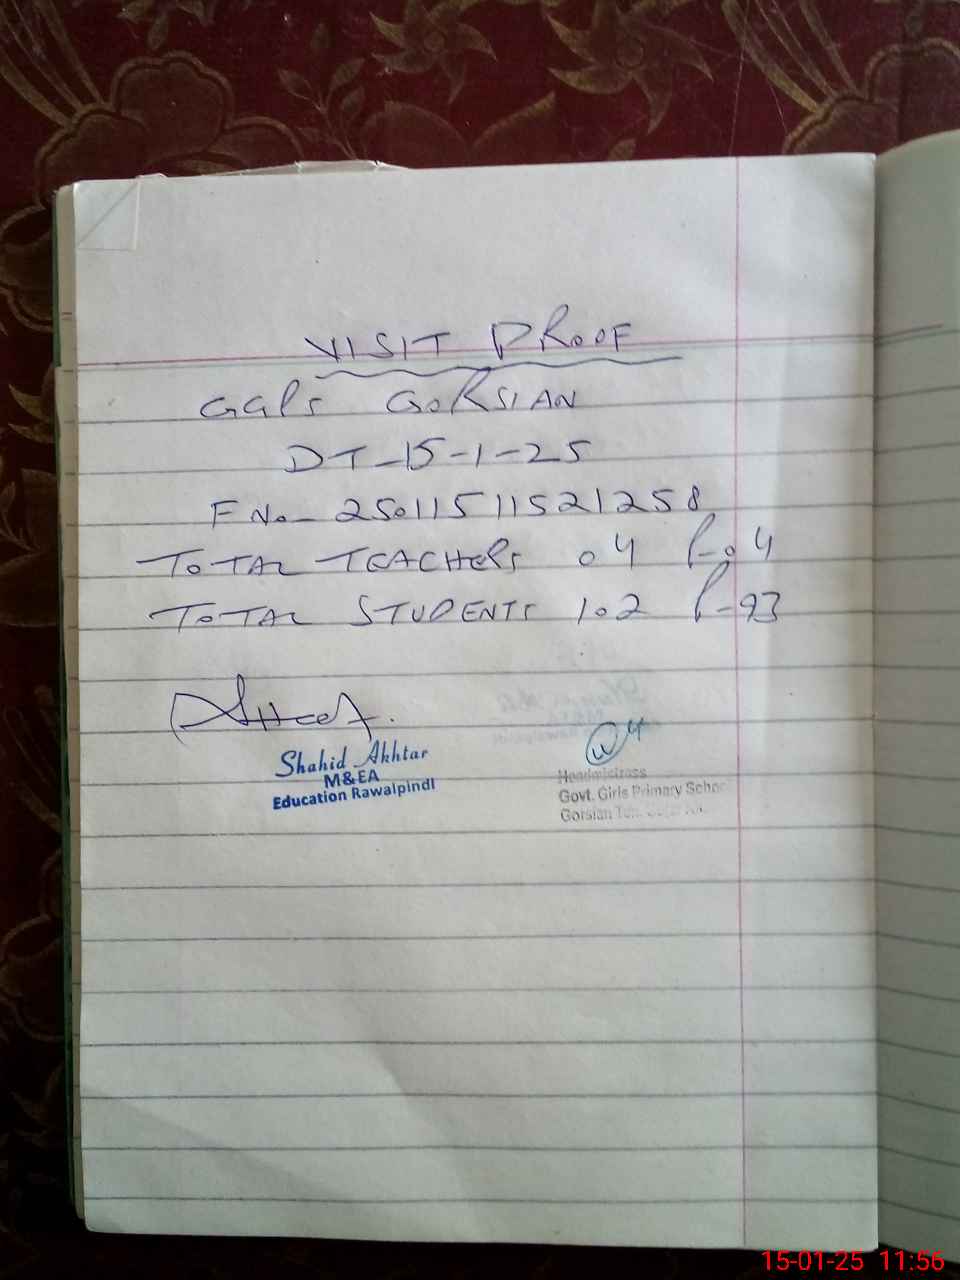 VISIT PROOF
GGPS GORSIAN
DT-15-1-25
F No- 25011511521258
TOTAL TEACHERS 04 P-04
TOTAL STUDENTS 102 P-93
Shahid Akhtar
M&EA
Education Rawalpindi
Headmistress
Govt. Girls Primary School
Gorsian
15-01-25 11:56